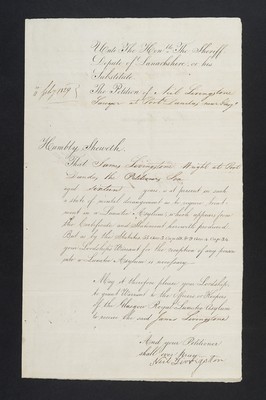 Unto The Honble The Sheriff
Depute of Lanarkshire, or his
Substitute
The Petition of Neil Livingstone
at Port Dundas
Humbly Sheweth
That James Livingstone Wright at Port
Dundas, the Petitioners Son
aged sixteen years, is at present in such
a state of mental derangement as to require treat
ment in a Lunatic Asylum, which appears from
the Certificate and Statement herewith produced
But as by the Statutes
your Lordships Warrant for the reception of any person
into a Lunatic Asylum is necessary.
May it therefore please your Lordship
to grant Warrant to the Director or Keeper
of the Glasgow Royal Lunatic Asylum
to receive the said James Livingstone
And your Petitioner
shall ever Pray
Neil Livingston